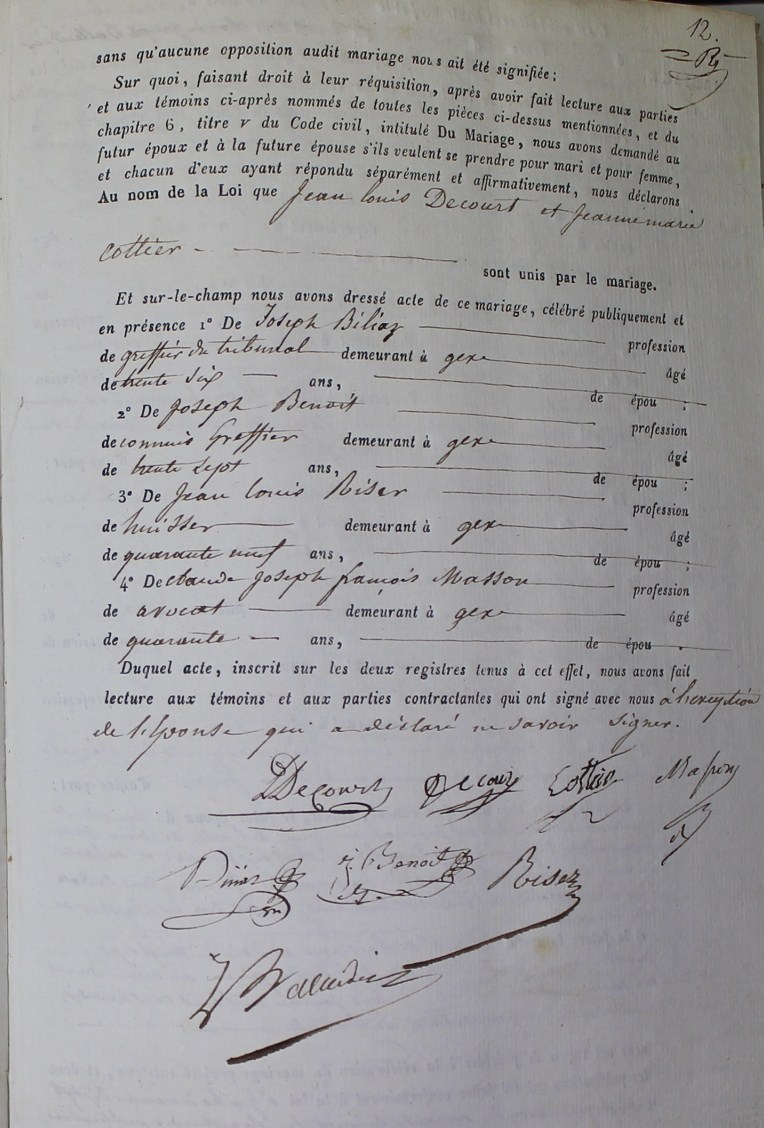 12.
sans qu'aucune opposition audit mariage nous ait été signifiée ;
Sur quoi, faisant droit à leur réquisition, après avoir fait lecture aux parties
et aux témoins ci-après nommés de toutes les pièces ci-dessus mentionnées, et du
chapitre 6, titre v du Code civil, intitulé Du Mariage, nous avons demandé au
futur époux et à la future épouse s'ils veulent se prendre pour mari et pour femme,
et chacun d'eux ayant répondu séparément et affirmativement, nous déclarons
Au nom de la Loi que Jean louis Decourt et Jeanne marie
cottier
sont unis par le mariage.
Et sur-le-champ nous avons dressé acte de ce mariage, célébré publiquement et
en présence 1° De Joseph profession
de greffier du tribunal demeurant à gex âgé
de trente six ans, de épou ;
2° De Joseph Benoit profession
de commis Greffier demeurant à gex âgé
de trente sept ans, de épou ;
3° De Jean louis Riser profession
de huissier demeurant à gex âgé
de quarante neuf ans, de épou ;
4° De claude Joseph françois Masson profession
de avocat demeurant à gex âgé
de quarante ans, de épou .
Duquel acte, inscrit sur les deux registres tenus à cet effet, nous avons fait
lecture aux témoins et aux parties contractantes qui ont signé avec nous à l'exception
de l'épouse qui a déclaré ne savoir signer.
Decourt Cottier Masson
Benoit Riser